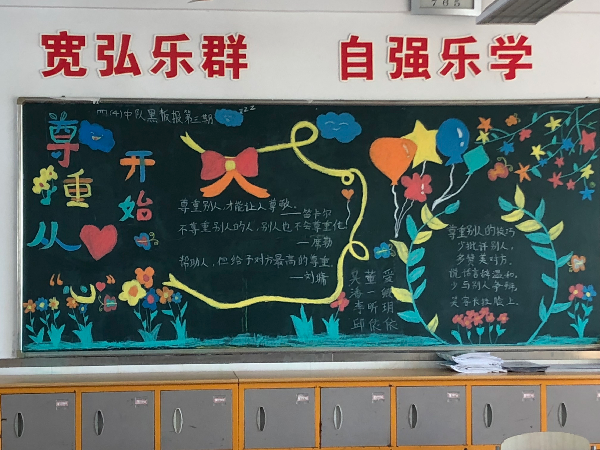 宽弘乐群 自强乐学
四(4)中队黑板报第三期
zzz
尊重
从
“心”
开始
尊重别人,才能让人尊敬。
——笛卡尔
不尊重别人的人,别人也不会尊重他。
帮助人,但给予对方最高的尊重。
吴董爱
李昕玥
尊重别人的技巧
少批评别人,
多赞美对方,
说话言辞温和,
少与别人争辩,
笑容长挂脸上。